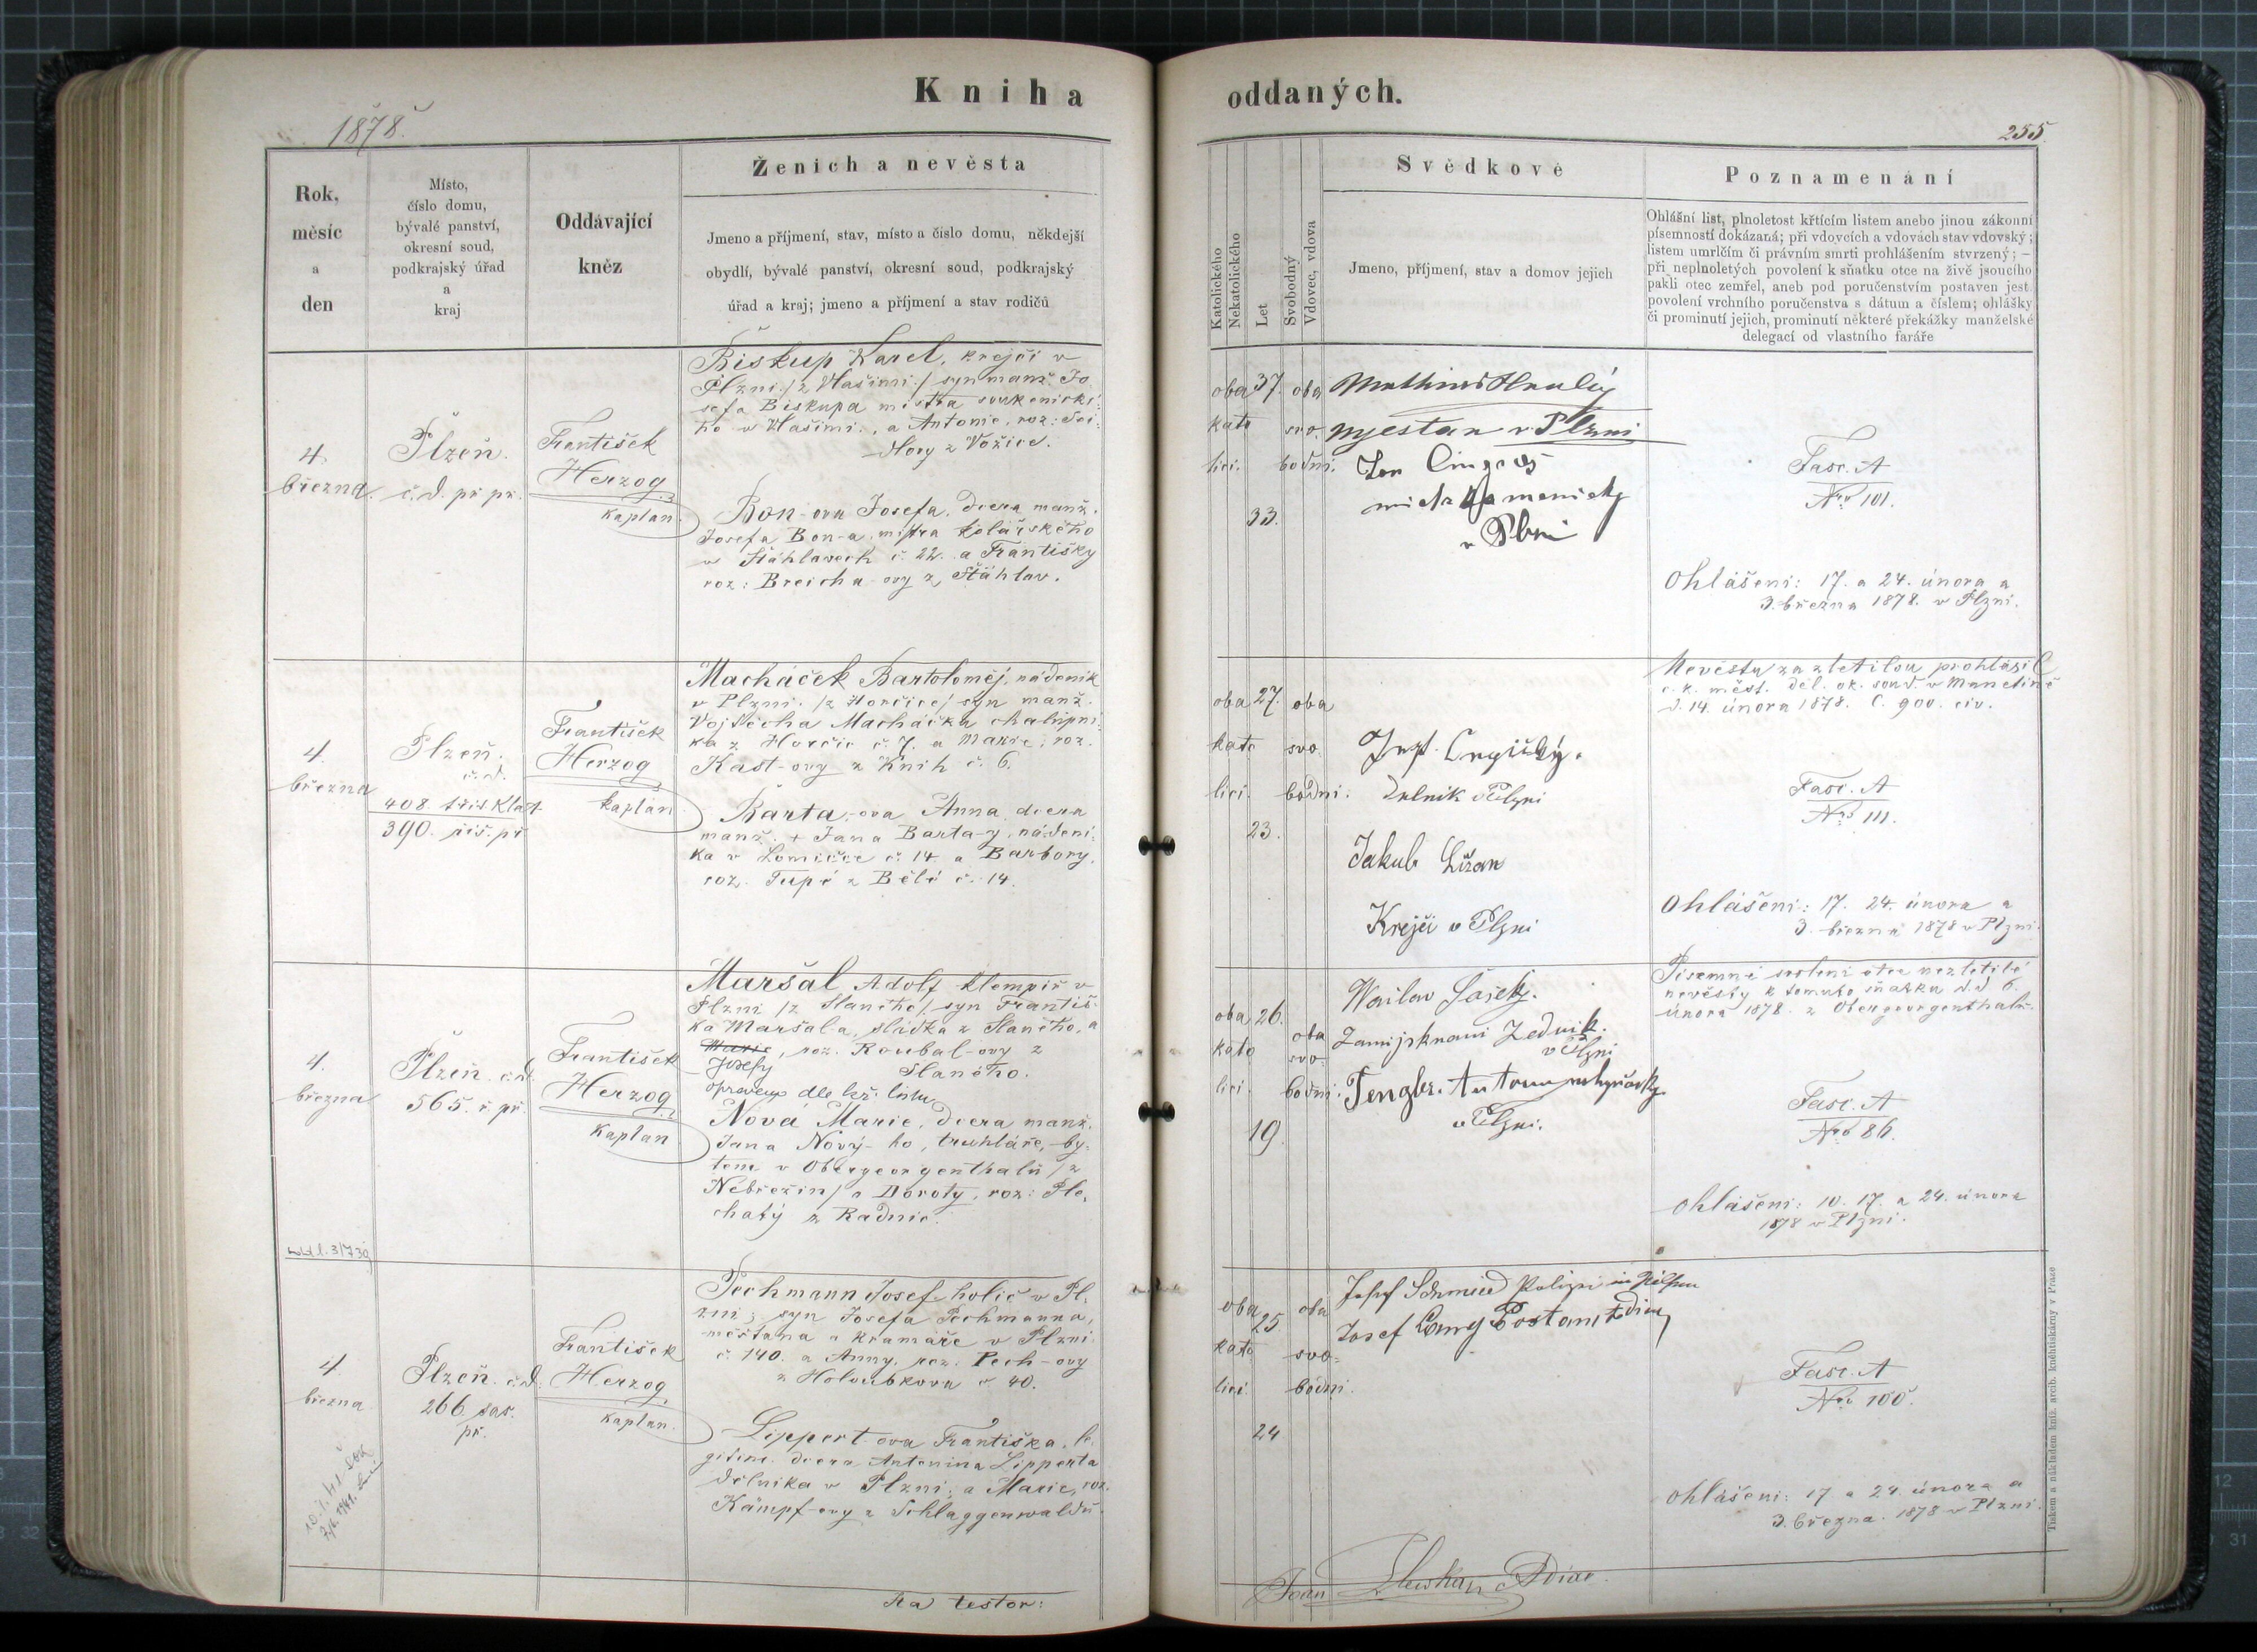 Kniha
oddaných.
1878.
255
Rok,
měsíc
a
den
Místo,
číslo domu,
bývalé panství,
okresní soud,
podkrajský úřad
a
kraj
Oddávající
kněz
Ženich a nevěsta
Jmeno a příjmení, stav, místo a číslo domu, někdejší
obydlí, bývalé panství, okresní soud, podkrajský
úřad a kraj; jmeno a příjmení a stav rodičů
Katolického
Nekatolického
Let
Svobodný
Vdovec, vdova
Svědkové
Jmeno, příjmení, stav a domov jejich
Poznamenání
Ohlášní list, plnoletost křtícím listem anebo jinou zákonní
písemností dokázaná; při vdovcích a vdovách stav vdovský;
listem umrlčím či právním smrti prohlášením stvrzený; –
při neplnoletých povolení k sňatku otce na živě jsoucího
pakli otec zemřel, aneb pod poručenstvím postaven jest
povolení vrchního poručenstva s dátum a číslem; ohlášky
či prominutí jejich, prominutí některé překážky manželské
delegací od vlastního faráře
4.
března.
Plzeň.
č. d. př. př.
František
Herzog
kaplan
Biskup Karel, krejčí v
Plzni /z Vlašimi/ syn manž. Jo
sefa Biskupa mistra soukenické
ho v Vlašimi, a Antonie, roz:
z Vožice.
Bon-ova Josefa, dcera manž.
Josefa Bon-a, mistra kolářského
v Šťáhlavech č. 22. a Františky
roz: Breicha-ovy z Šťáhlav.
oba 37. oba
kato svo
líci. bodni.
33.
v Plzni
v Plzni
Fasc. A
Nro 101.
Ohlášeni: 17. a 24. února a
3. března 1878. v Plzni.
4.
března
Plzeň.
č. d.
408
390. říš. př.
František
Herzog
kaplan
Macháček Bartoloměj, nádeník
v Plzni. /z Horčice/ syn manž.
Vojtěcha Macháčka chalupní
ka z Horčic č. 7. a Marie, roz.
Kast-ovy z Knih č. 6.
Barta-ova Anna, dcera
manž. + Jana Barta-y, nádení
ka v Lomničce č. 14 a Barbory,
roz. Tupé z Bělé č. 14.
oba 27. oba
kato svo
líci. bodni.
23.
Dělník v Plzni
Jakub
Krejčí v Plzni
Nevěstu za zletilou prohlásil
c. k. měst. del. ok. soud. v Manetíně
d. 14. února 1878. č. 900. civ.
Fasc. A
Nro 111.
Ohlášeni: 17. 24. února a
3. března 1878 v Plzni.
4.
března
Plzeň. č. d.
565. ř. př.
František
Herzog
kaplan
Maršál Adolf klempíř v
Plzni /z Slaného/ syn Františ
ka Maršala, slídka z Slaného, a
Marie, roz. Roubal-ovy z
Josefy Slaného.
opraveno dle kř. listu
Nová Marie, dcera manž.
Jana Nový-ho, truhláře, by-
tem v Obergeorgenthalu /z
Nebřezin/ a Doroty, roz: Ple
chatý z Radnic.
oba 26. oba
kato svo
líci. bodni.
19.
Zednik
v Plzni
Tengler Anton
v Plzni.
Písemné svolení otce nezletilé
nevěsty k tomuto sňatku d. d. 6.
února 1878. z Obergeorgenthalu.
Fasc. A
Nro 86.
Ohlášeni: 10. 17. a 24. února
1878 v Plzni.
4.
března
Plzeň. č. d.
266 sas.
př.
František
Herzog
kaplan.
Pechmann Josef holič v Pl-
zni; syn Josefa Pechmanna,
měšťana a kramáře v Plzni.
č. 140. a Anny, roz. Pech-ovy
z Holoubkova č. 40.
Lippert-ova Františka, le
gitim. dcera Antonina Lipperta
dělníka v Plzni; a Marie, roz.
Kämpf-ovy z Schlaggenwaldu.
oba 25. oba
kato svo-
líci. bodni.
24
Josef Schmied Polizei in Pilsen
Josef Lang
Fasc. A
Nro 100.
Ohlášeni: 17 a 24. února a
3. března. 1878 v Plzni.
Ita testor:
Tiskem a nákladem kníž. arcib. knihtiskárny v Praze